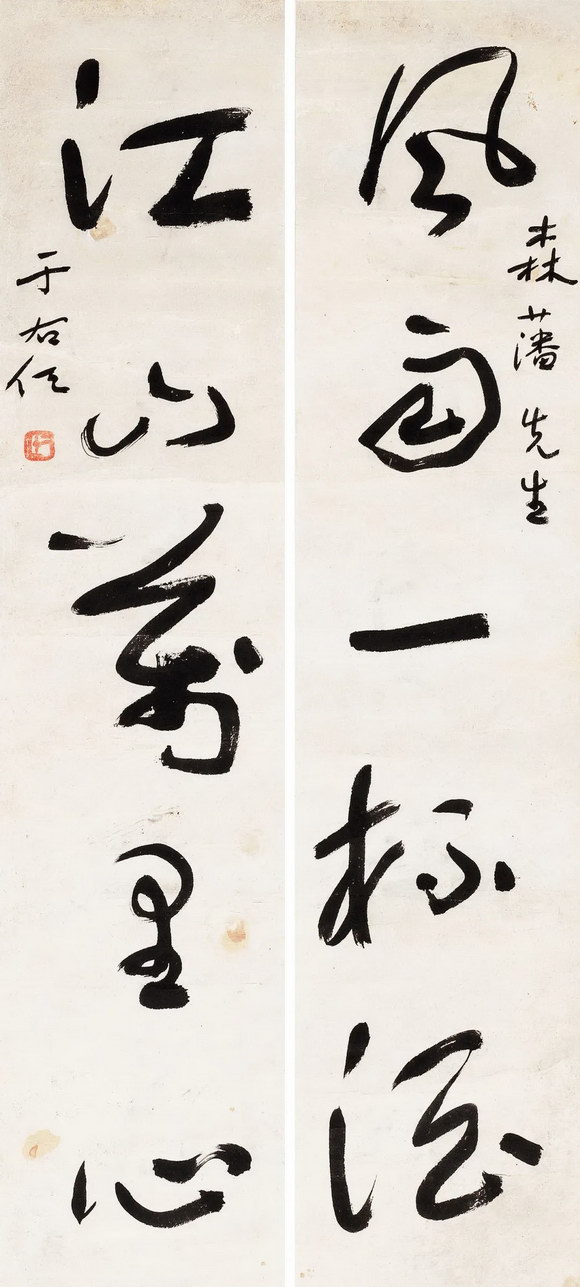 風雨一杯酒
森藩先生
江山萬里心
于右任